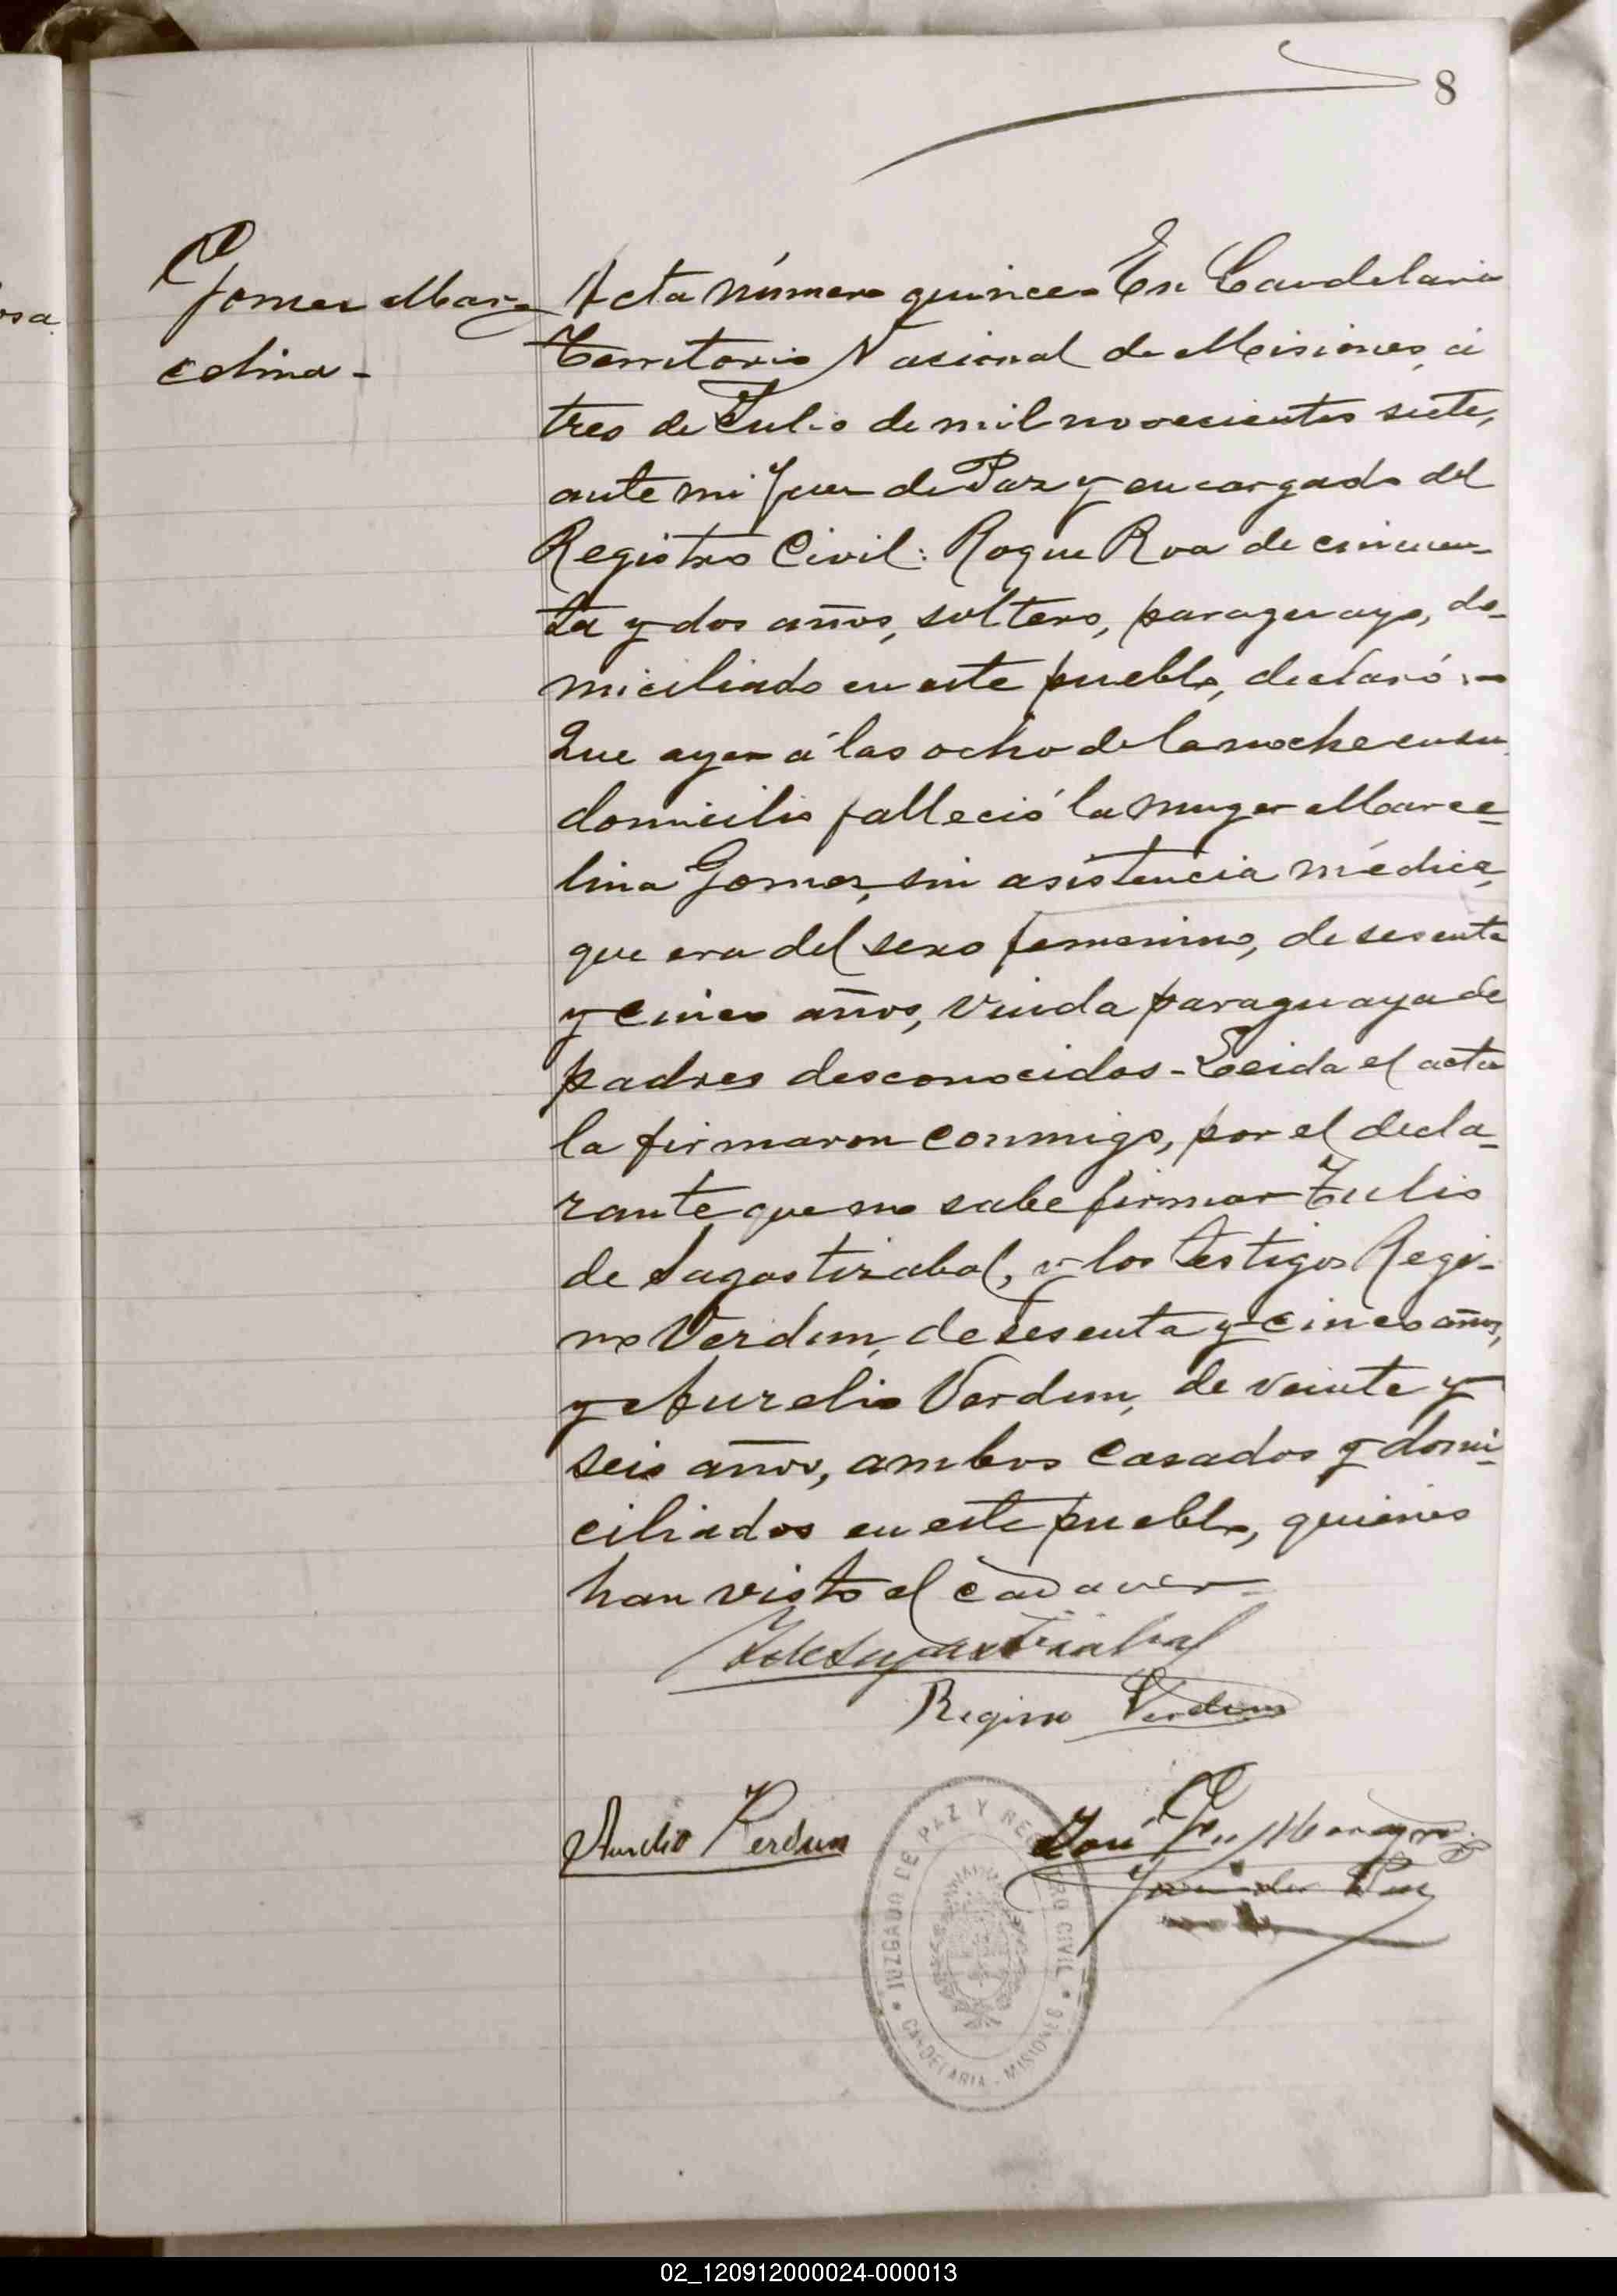 8
osa
Gomez Mar-
celina-
Acta número quince. En Candelaria
Territorio Nacional de Misiones, á
tres de Julio de mil novecientos siete,
ante mi Juez de Paz y encargado del
Registro Civil: Roque Roa de cincuen-
ta y dos años, soltero, paraguayo, do-
miciliado en este pueblo, declaró:-
Que ayer á las ocho de la noche en su
domicilio falleció la muger Marce-
lina Gomez, sin asistencia médica,
que era del sexo femenino, de sesenta
y cinco años, viuda paraguaya de
padres desconocidos- Leida el acta
la firmaron conmigo, por el decla-
rante que no sabe firmar Julio
de Sagastizabal, y los testigos Regi-
no Verdun, de sesenta y cinco años,
y Aurelio Verdun, de veinte y
seis años, ambos casados y domi-
ciliados en este pueblo, quienes
han visto el cadaver-
JdeSagastizabal
Regino Verdun
Aurelio Verdun
José
Juez de Paz
JUZGADO DE PAZ Y REGISTRO CIVIL
CANDELARIA - MISIONES
02_120912000024-000013